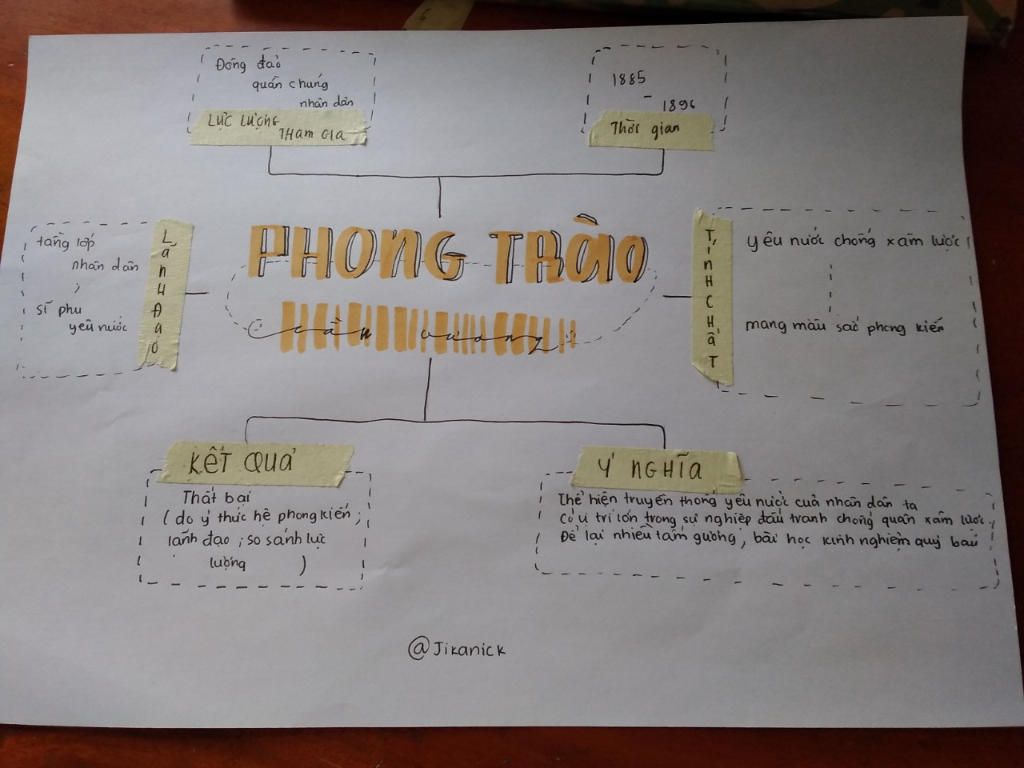 Đông đảo
quần chúng
nhân dân
LỰC LƯỢNG
THAM GIA
1885
-
1896
Thời gian
PHONG TRÀO
cần vương
LÃNH ĐẠO
tầng lớp
nhân dân
;
sĩ phu
yêu nước
TÍNH CHẤT
yêu nước chống xâm lược
mang màu sắc phong kiến
KẾT QUẢ
Thất bại
( do ý thức hệ phong kiến ;
lãnh đạo ; so sánh lực
lượng )
Ý NGHĨA
Thể hiện truyền thống yêu nước của nhân dân ta
Có vị trí lớn trong sự nghiệp đấu tranh chống quân xâm lược
Để lại nhiều tấm gương, bài học kinh nghiệm quý báu
@Jikanick